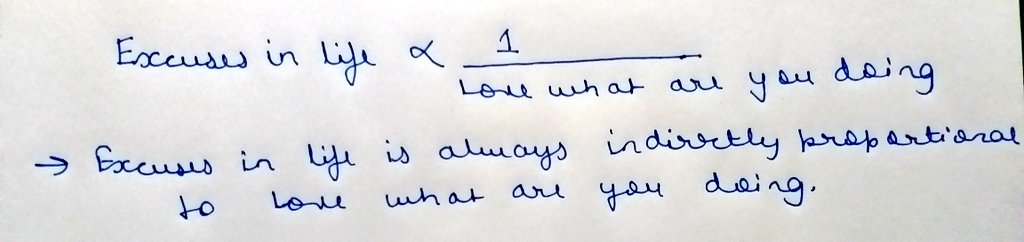 Excuses in life ∝ 1
Love what are you doing
→ Excuses in life is always indirectly proportional
to Love what are you doing.